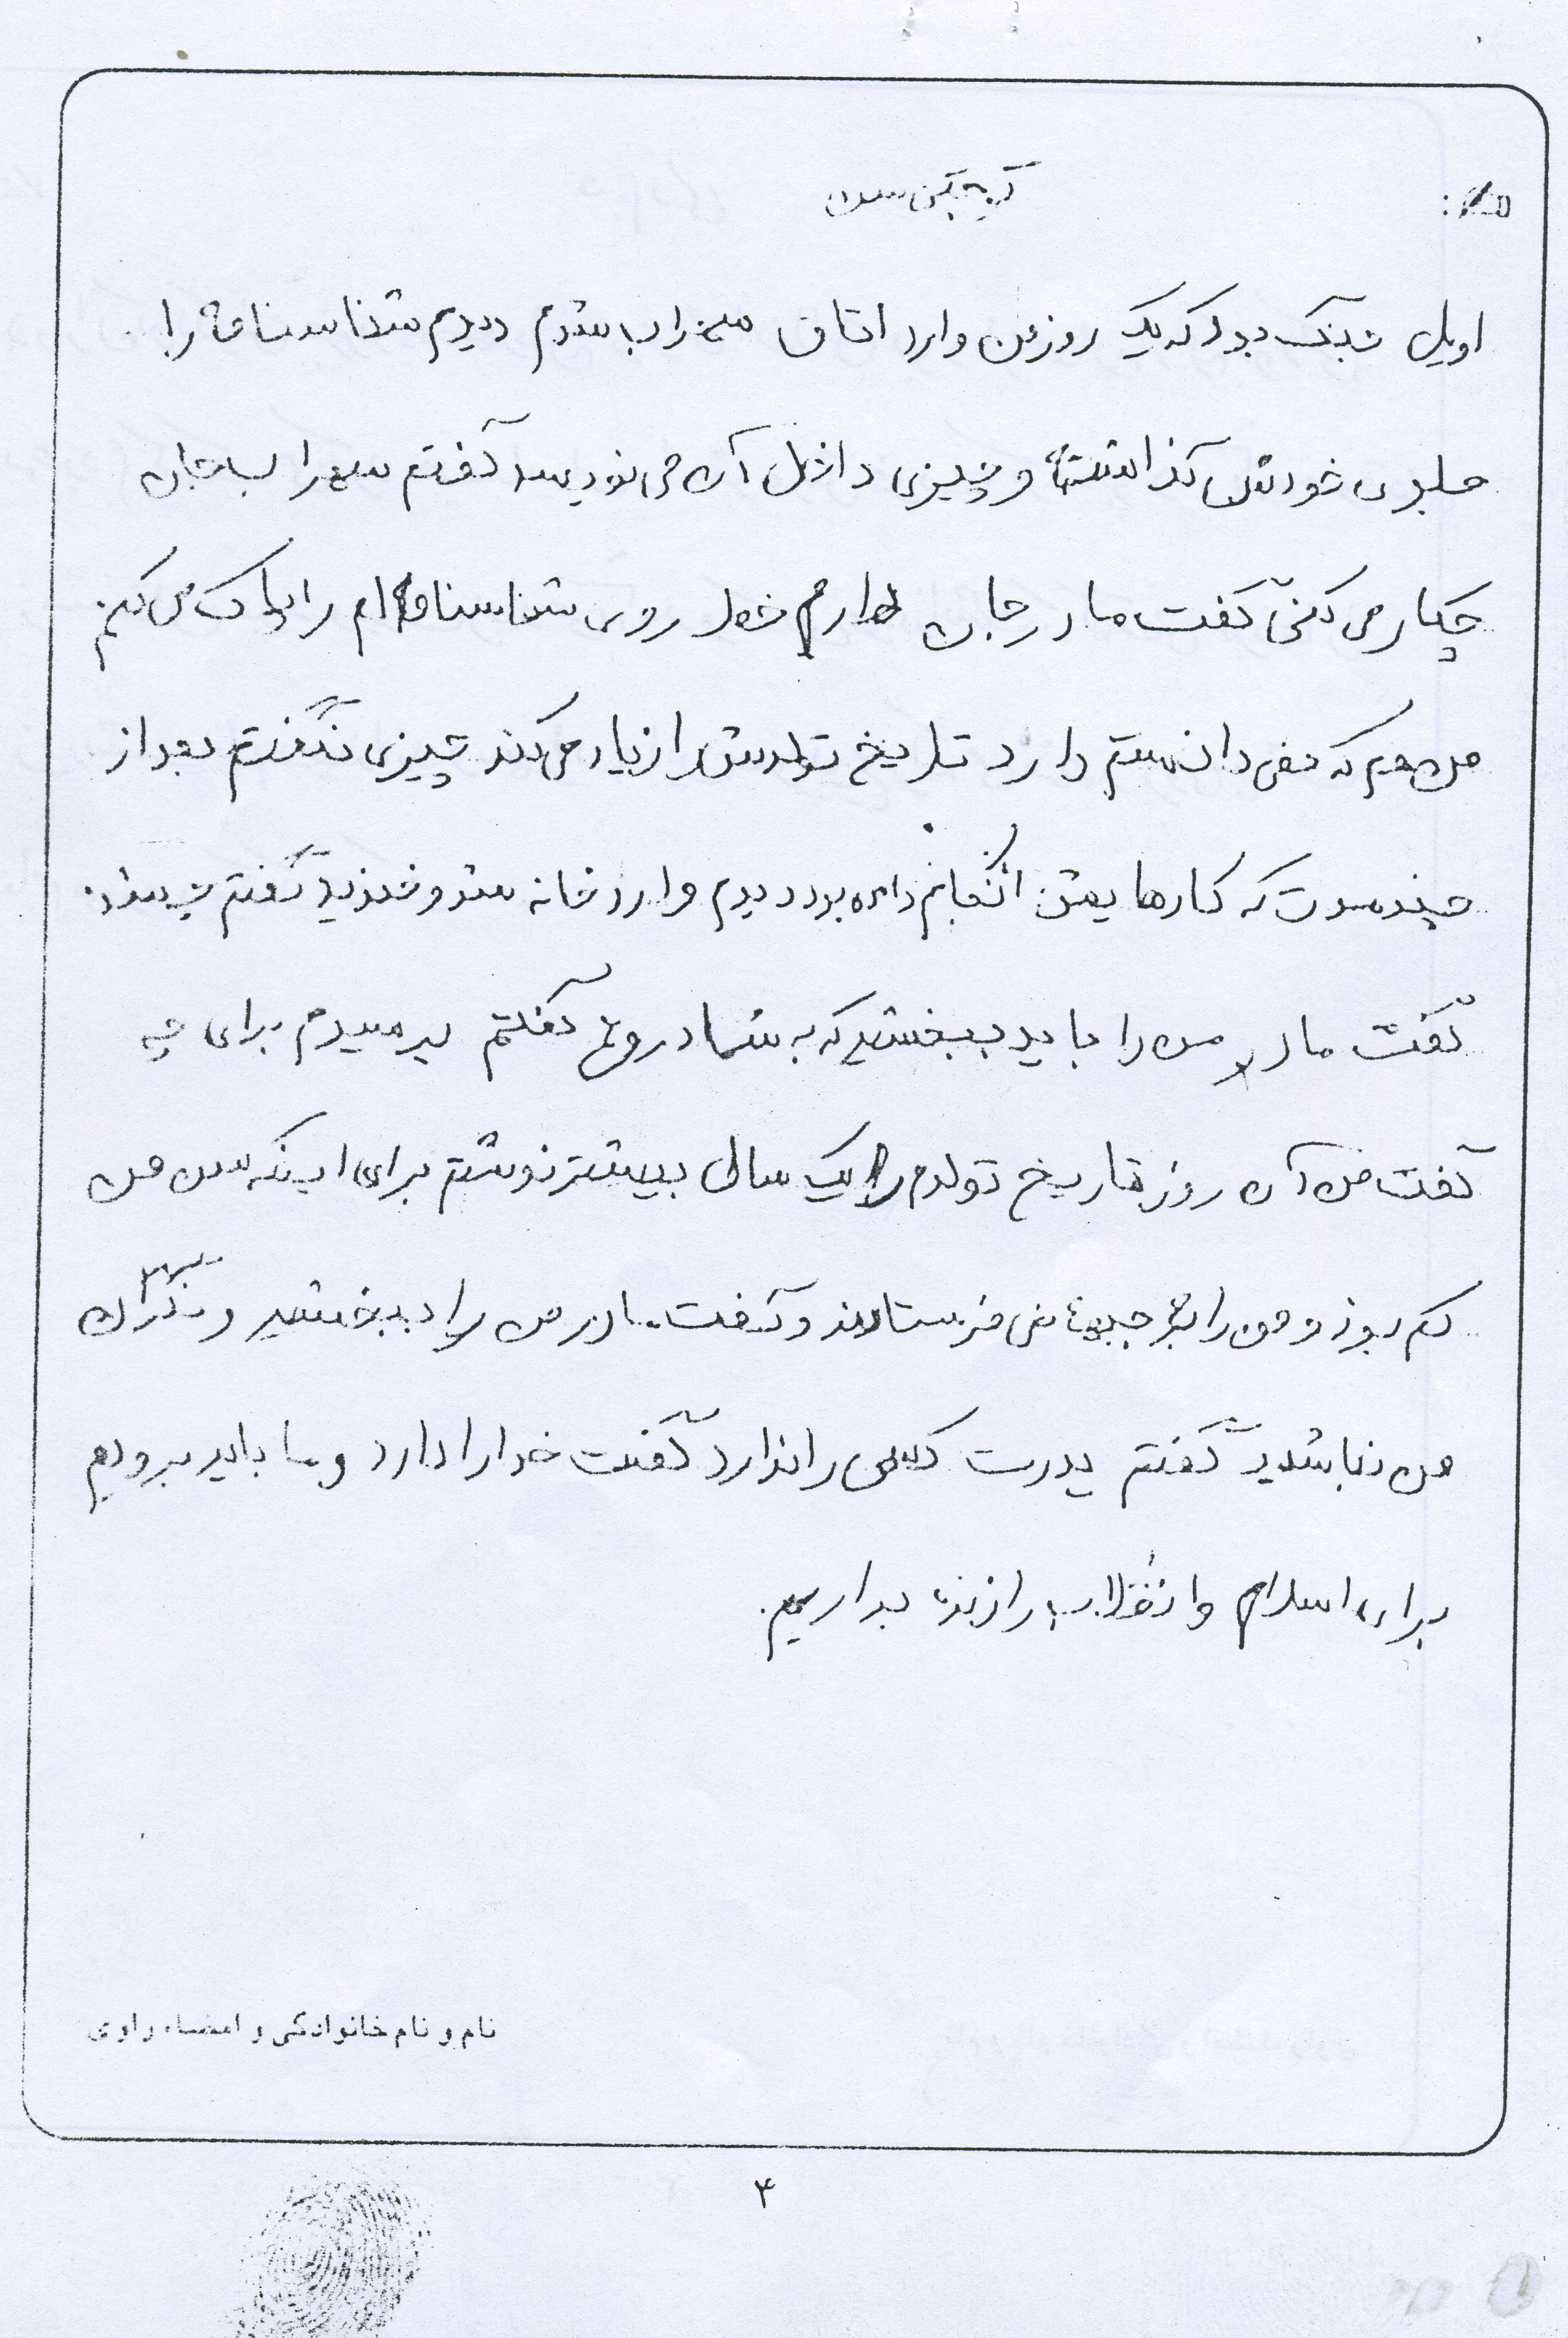 اویل جنگ بود که یک روز من وارد اتاق سهراب شدم دیدم شناسنامه را
جلوی خودش گذاشته و چیزی داخل آن می نویسد گفتم سهراب جان
چکار می کنی گفت مادر جان دارم خط روی شناسنامه ام را پاک می کنم
من هم که نمی دانستم دارد تاریخ تولدش را زیاد می کند چیزی نگفتم بعد از
چند مدت که کارهایش انجام داده بود دیدم وارد خانه شد و خندید گفتم چه شده
گفت مادر من را باید ببخشید که به شما دروغ گفتم پرسیدم برای چه
گفت من آن روز تاریخ تولدم را یک سال بیشتر نوشتم برای اینکه سن من
کم بود و من را به جبهه نمی فرستادند و گفت مادر من را ببخشید و نگران
من نباشید گفتم پدرت کسی را ندارد گفت خدا را دارد و ما باید برویم
برای اسلام و انقلاب را زنده بداریم.
نام و نام خانوادگی و امضاء راوی
۴